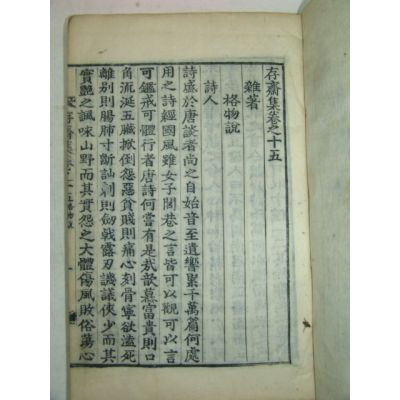 存齋集卷之十五
雜著
格物說
詩人
詩盛於唐談者尚之自始音至遺響累千萬篇何處
用之詩經國風雖女子閭巷之言皆可以觀可以言
可鑑戒可體行者唐詩何嘗有是哉歆慕富貴則口
角流涎五臟掀倒怨惡貧賤則痛心刻骨寧欲溘死
離別則腸肺寸斷訕刺則劍戟露刃譏議俠少而其
實艷之諷咏山野而其實怨之大體傷風敗俗蕩心
存齋集卷之十五